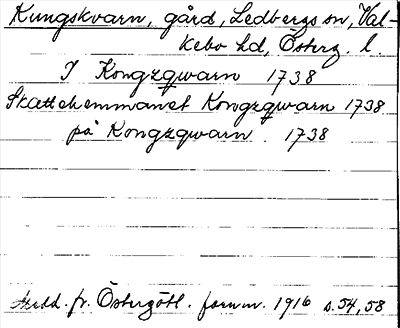 Kungskvarn, gård, Ledbergs sn, Val-
kebo hd, Österg. l.
I Kongzqwarn 1738
Skattehemmanet Kongzqwarn 1738
på Kongzqwarn 1738
Medd. fr. Östergötl. fornm. 1916 s. 54, 58